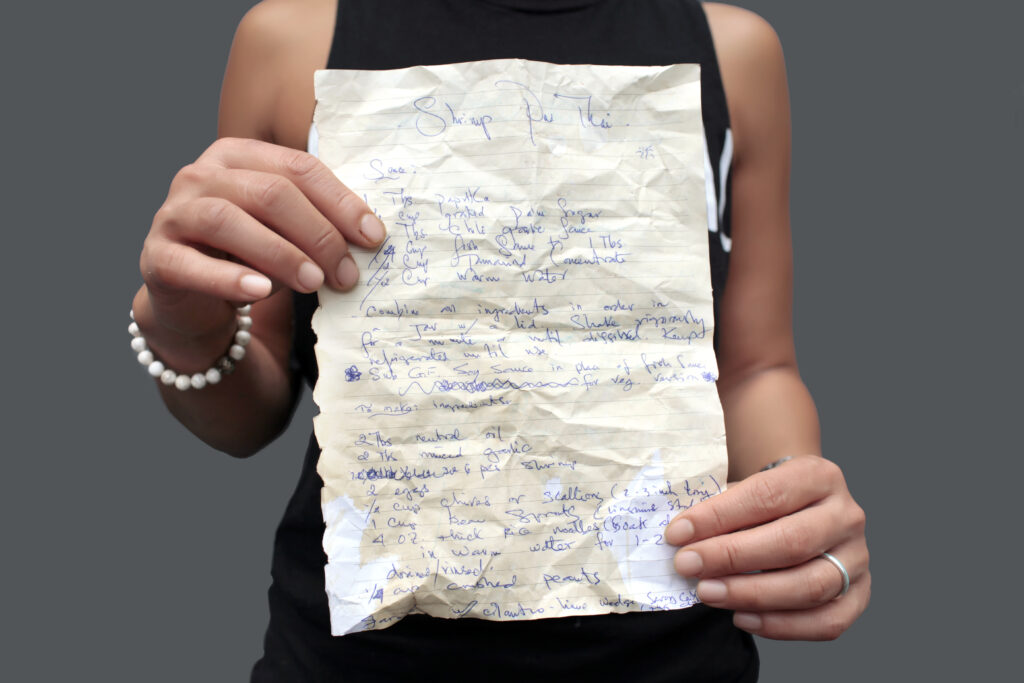 Shrimp Pad Thai
Sauce:
1 Tbs paprika
cup grated palm sugar
Tbs chile garlic sauce
1/4 cup fish sauce + 1 Tbs
1/2 cup Tamarind Concentrate
1/2 cup warm water
Combine all ingredients in order in
a Jar w/ a lid Shake vigorously
for a minute or until dissolved Keep
refrigerated until use
Sub G.F. Soy Sauce in place of fish sauce
for veg. version
To make: ingredients:
2 Tbs neutral oil
2 Tbs minced garlic
6 per shrimp
2 eggs
1/2 cup chives or scallion (2-3 inch long)
1 cup bean sprouts
4 oz thick rice noodles (soak
in warm water for 1-2
drain/rinsed)
1/4 cup crushed peanuts
w/ cilantro - lime wedge